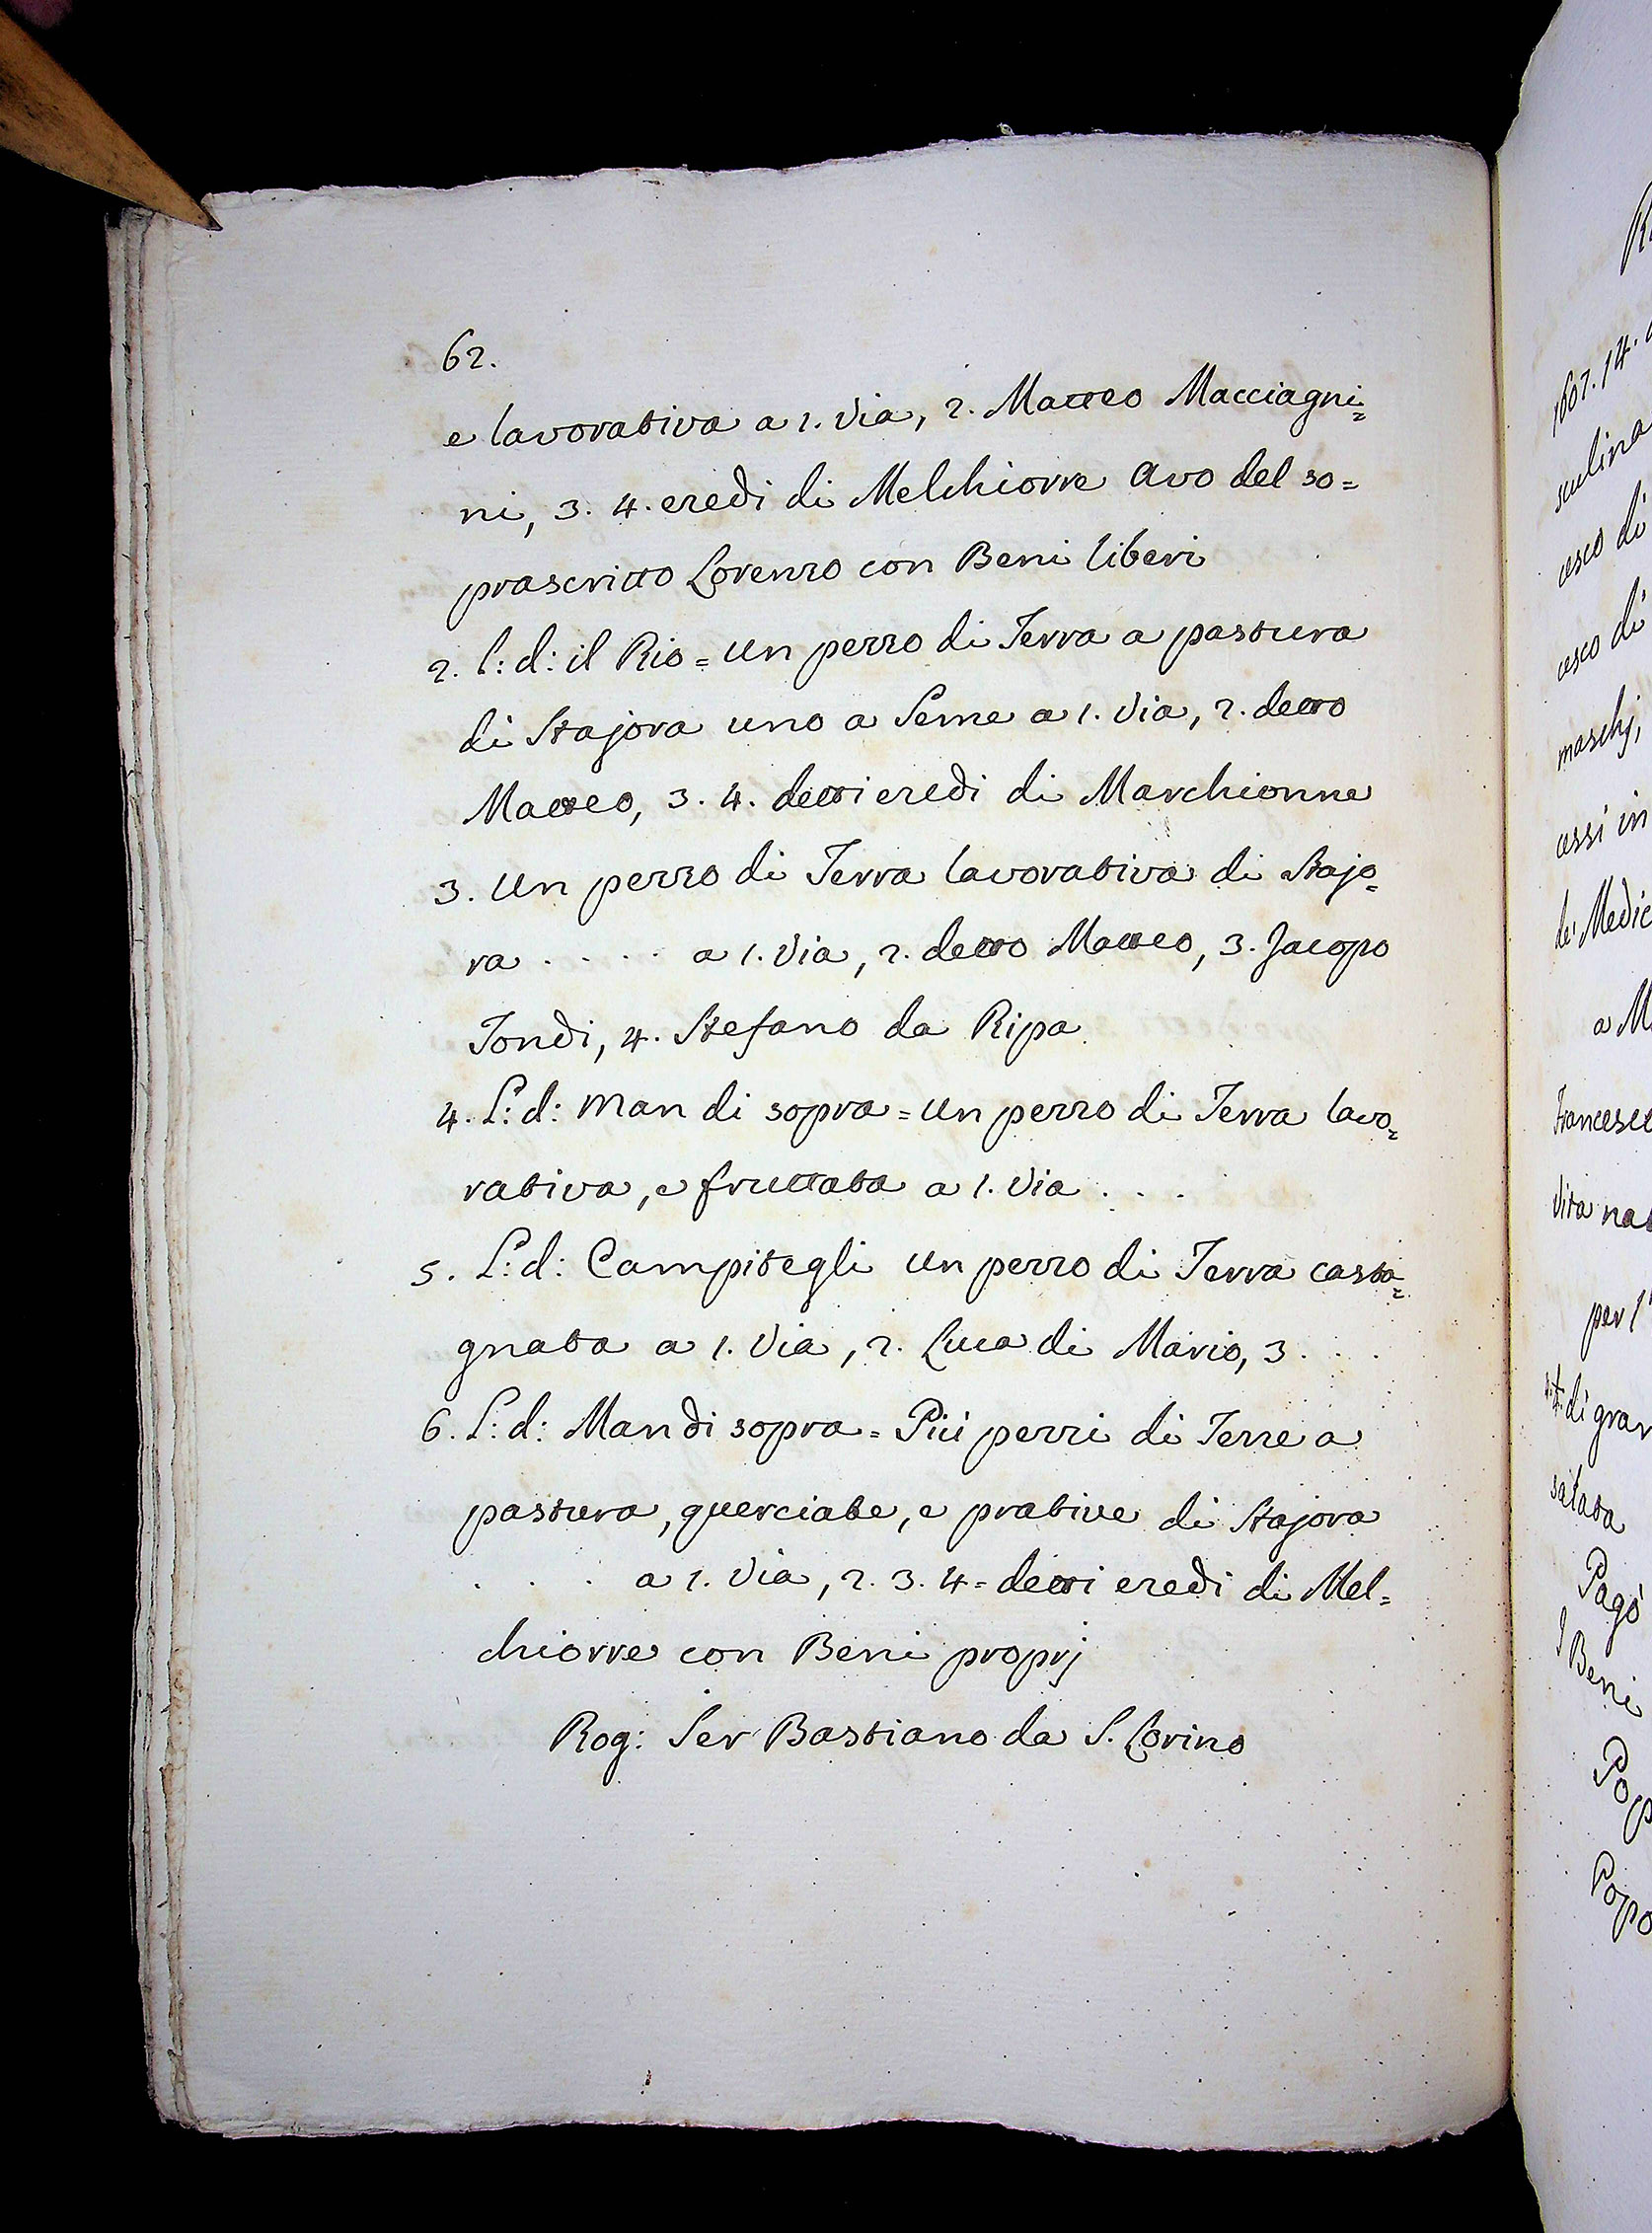 62.
e lavorativa a 1. Via, 2. Matteo Macciagni=
ni, 3. 4. eredi di Melchiorre Avo del so=
prascritto Lorenzo con Beni liberi
2. l: d: il Rio = Un pezzo di Terra a pastura
di Stajora uno a Seme a 1. Via, 2. detto
Matteo, 3. 4. detti eredi di Marchionne
3. Un pezzo di Terra lavorativa di Stajo=
ra . . . . a 1. Via, 2. detto Matteo, 3. Jacopo
Tondi, 4. Stefano da Ripa
4. L: d: Man di sopra = Un pezzo di Terra lavo=
rativa, e fruttata a 1. Via . . .
5. L: d: Campitegli Un pezzo di Terra casta=
gnata a 1. Via, 2. Luca di Mario, 3 . . .
6. L: d: Man di sopra = Più pezzi di Terre a
pastura, querciate, e prative di Stajora
. . . a 1. Via, 2. 3. 4 = detti eredi di Mel=
chiorre con Beni proprj
Rog: Ser Bastiano da S. Lorino
1607. 14.
sculina
cesco di
cesco di
maschj,
essi in
de' Medic
a M
Francesco
Vita nat
per l'
di gran
salata
Pagò
Beni
Pop
Popo